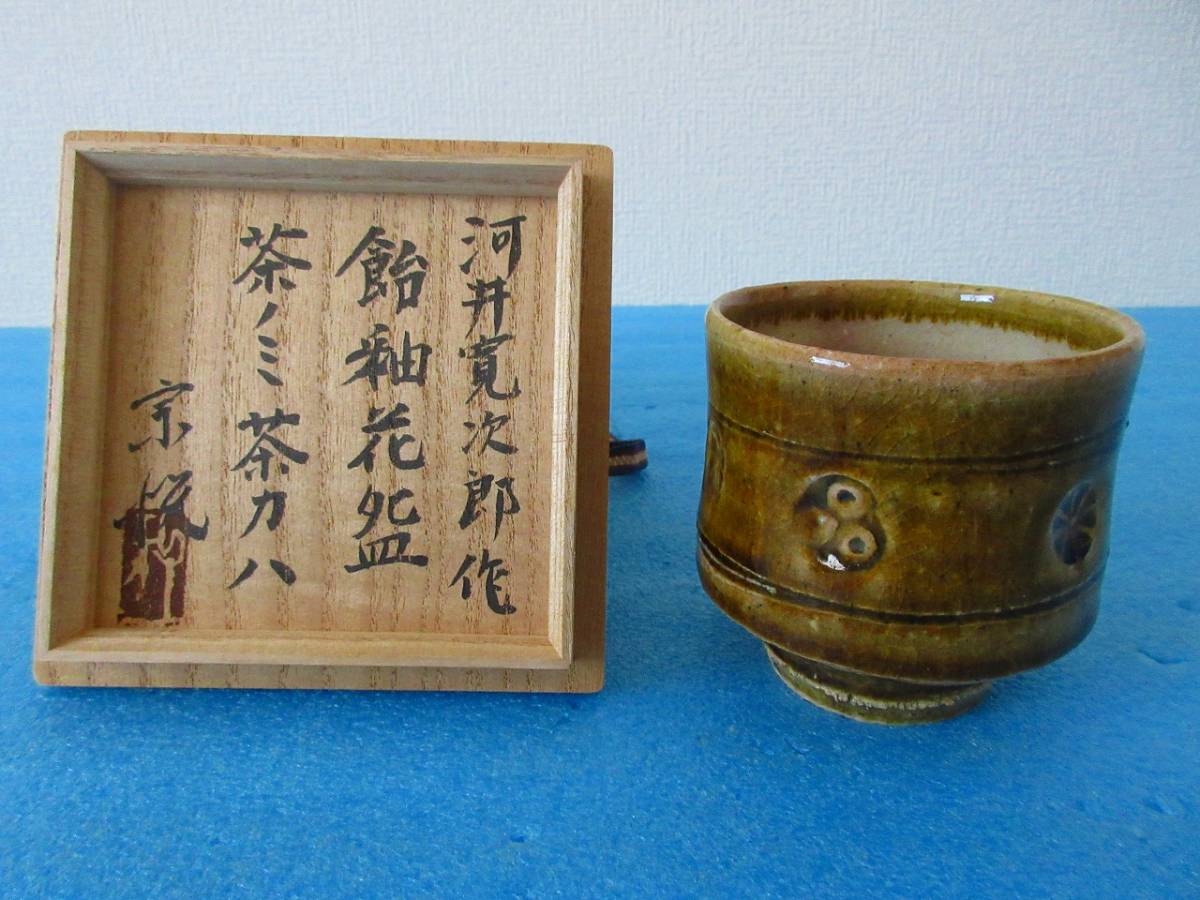 河井寛次郎作
飴釉花盌
茶ノミ茶カハ
宗悦